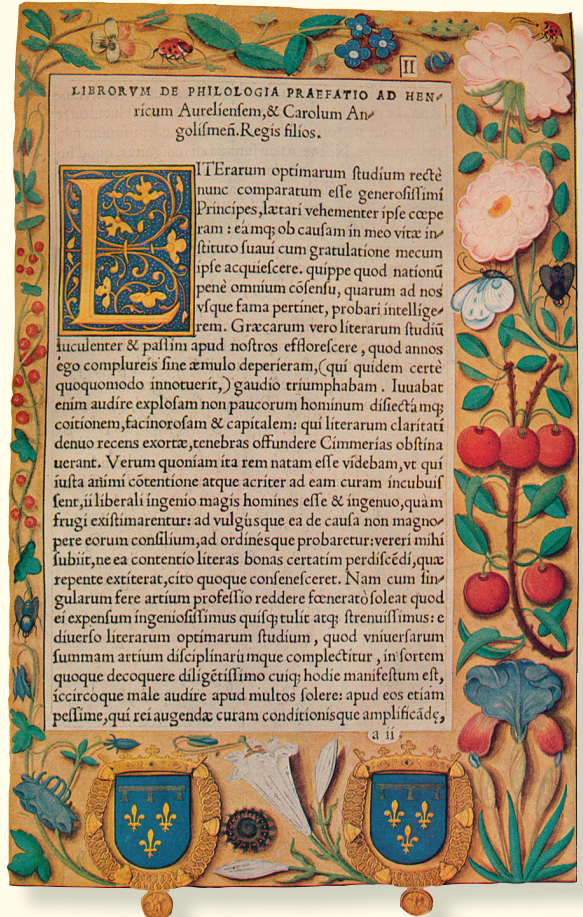 II
LIBRORVM DE PHILOLOGIA PRAEFATIO AD HEN-
ricum Aureliensem, & Carolum An-
golismeñ. Regis filios.
LITErarum optimarum studium rectè
nunc comparatum esse generosissimi
Principes, lætari vehementer ipse cœpe
ram: eámq; ob causam in meo vitæ in-
stituto suaui cum gratulatione mecum
ipse acquiescere. quippe quod nationũ
penè omnium cõsensu, quarum ad nos
vsque fama pertinet, probari intellige-
rem. Græcarum vero literarum studiũ
luculenter & passim apud nostros efflorescere, quod annos
ego complureis sine æmulo deperieram, (qui quidem certè
quoquomodo innotuerit,) gaudio triumphabam. Iuuabat
enim audire explosam non paucorum hominum disiectámq;
coitionem, facinorosam & capitalem: qui literarum claritati
denuo recens exortæ, tenebras offundere Cimmerias obstina
uerant. Verum quoniam ita rem natam esse videbam, vt qui
iusta animi cõtentione atque acriter ad eam curam incubuis
sent, ii liberali ingenio magis homines esse & ingenuo, quàm
frugi existimarentur: ad vulgúsque ea de causa non magno-
pere eorum consilium, ad ordinésque probaretur: vereri mihi
subiit, ne ea contentio literas bonas certatim perdiscẽdi, quæ
repente extiterat, cito quoque consenesceret. Nam cum sin-
gularum fere artium professio reddere fœneratò soleat quod
ei expensum ingeniosissimus quisq; tulit atq; strenuissimus: e
diuerso literarum optimarum studium, quod vniuersarum
summam artium disciplinarúmque complectitur, in sortem
quoque decoquere diligẽtissimo cuiq; hodie manifestum est,
iccircoque male audire apud multos solere: apud eos etiam
pessime, qui rei augendæ curam conditionisque amplificãdę,
a ii